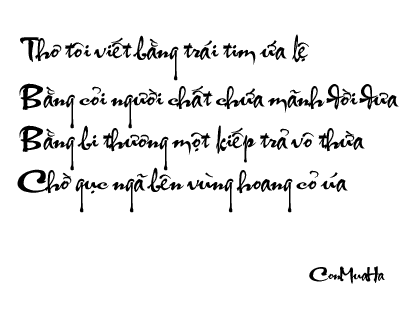 Thơ tôi viết bằng trái tim ứa lệ
Bằng cỏi người chất chứa mãnh đời đưa
Bằng bi thương một kiếp trả vô thừa
Chờ gục ngã bên vùng hoang cỏ úa
ConMuaHa